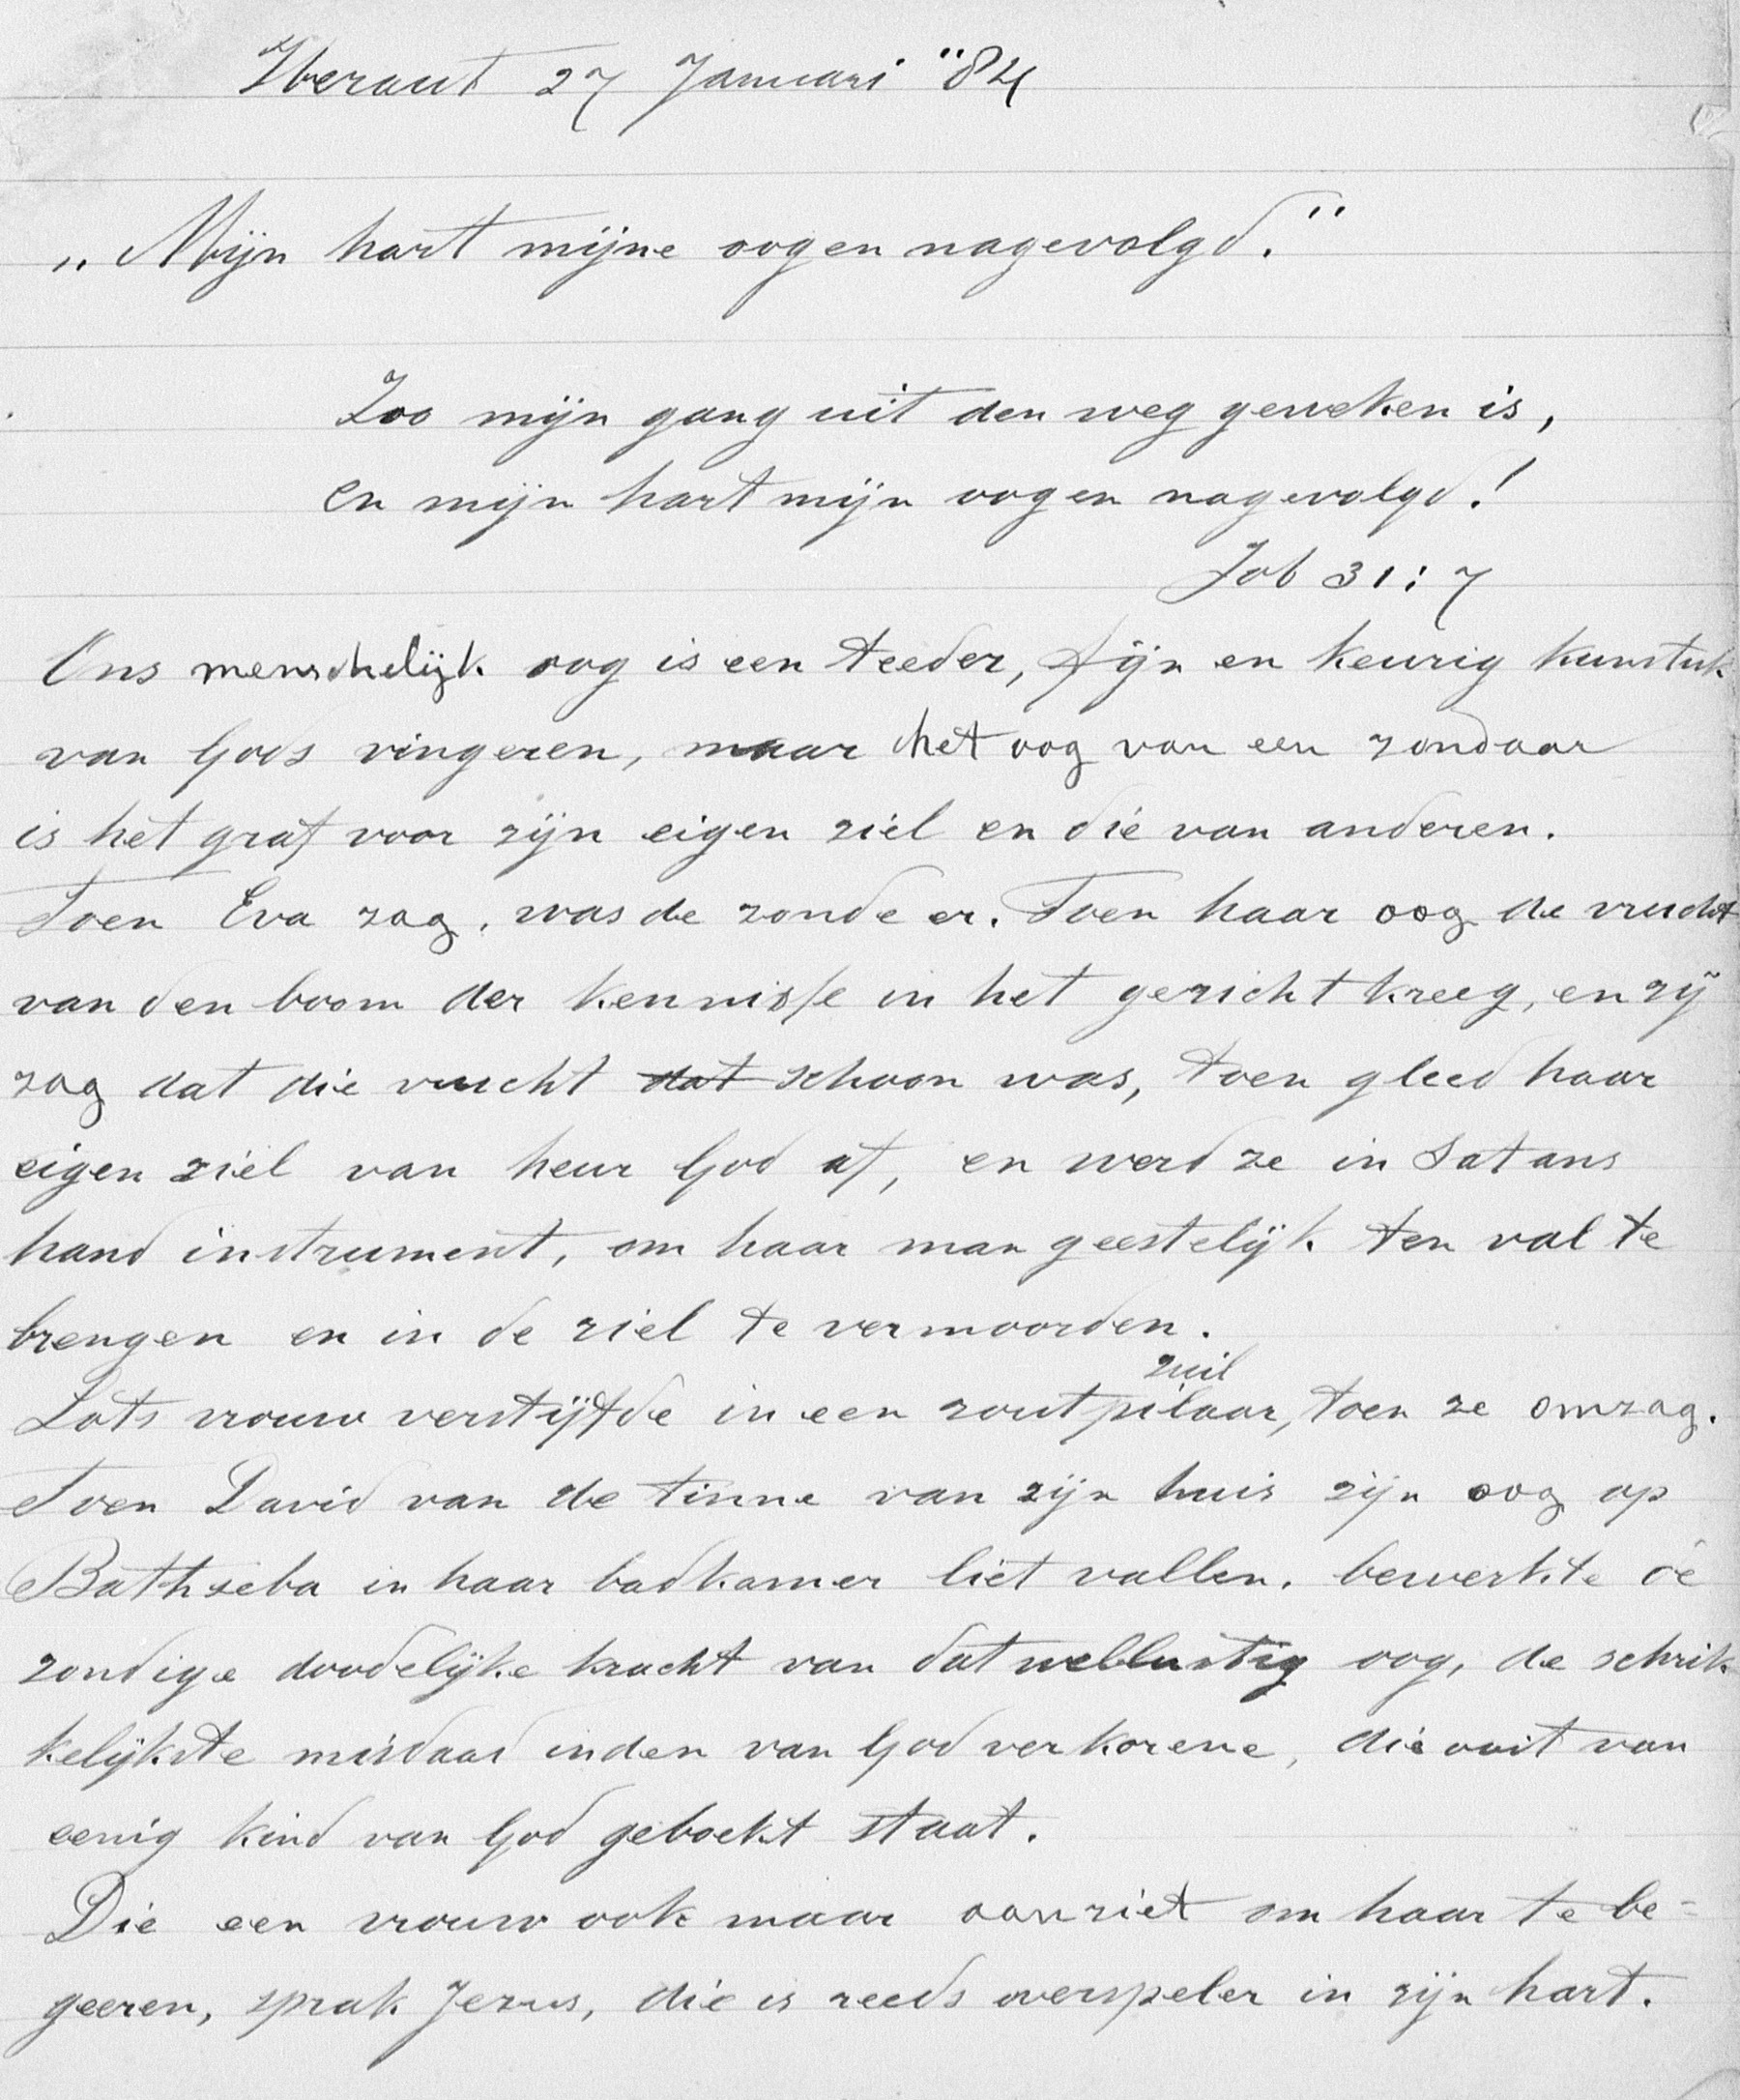 Heraut 27 Januari "84
„Mijn hart mijne oogen nagevolgd."
Zoo mijn gang uit den weg geweken is,
en mijn hart mijn oogen nagevolgd!
Job 31:7
Ons menschelijk oog is een teeder, fijn en keurig kunstuk
van Gods vingeren, maar het oog van een zondaar
is het graf voor zijn eigen ziel en die van anderen.
Toen Eva zag, was de zonde er. Toen haar oog de vrucht
van den boom der kennisse in het gezicht kreeg, en zij
zag dat die vrucht dat schoon was, toen gleed haar
eigen ziel van heur God af, en werd ze in Satans
hand instrument, om haar man geestelijk ten val te
brengen en in de ziel te vermoorden.
zuil
Lots vrouw verstijfde in een zoutpilaar, toen ze omzag.
Toen David van de tinne van zijn huis zijn oog op
Bathseba in haar badkamer liet vallen, bewerkte de
zondige doodelijke kracht van dat wellustig oog, de schrik
kelijkste misdaad in den van God verkorene, die ooit van
eenig kind van God geboekt staat.
Die een vrouw ook maar aanziet om haar te be=
geeren, sprak Jezus, die is reeds overspeler in zijn hart.